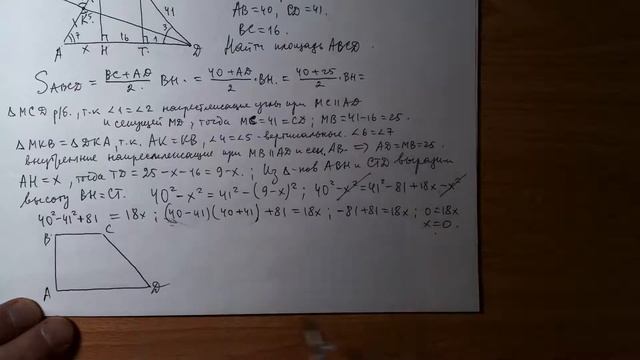 AB = 40, CD = 41.
BC = 16.
Найти площадь ABCD.
K 5
41
7
3
A X H 16 T 1 D
S ABCD = BC+AD/2 · BH. = 40+AD/2 · BH. = 40+25/2 · BH =
△MCD р/б, т.к ∠1=∠2 накрестлежащие углы при MC ∥ AD
и секущей MD, тогда MC = 41 = CD; MB = 41-16 = 25.
△MKB = △DKA, т.к. AK = KB, ∠4=∠5 - вертикальные. ∠6=∠7
внутренние накрестлежащие при MB ∥ AD и сек. AB. ⇒ AD = MB = 25.
AH = x, тогда TD = 25-x-16 = 9-x. ; Из △-ков ABH и CTD выразим
высоту BH = CT. 40² - x² = 41² - (9-x)² ; 40² - x² = 41² - 81 + 18x - x²
40² - 41² + 81 = 18x ; (40-41)(40+41) + 81 = 18x ; -81+81 = 18x ; 0 = 18x
x = 0.
B C
A D